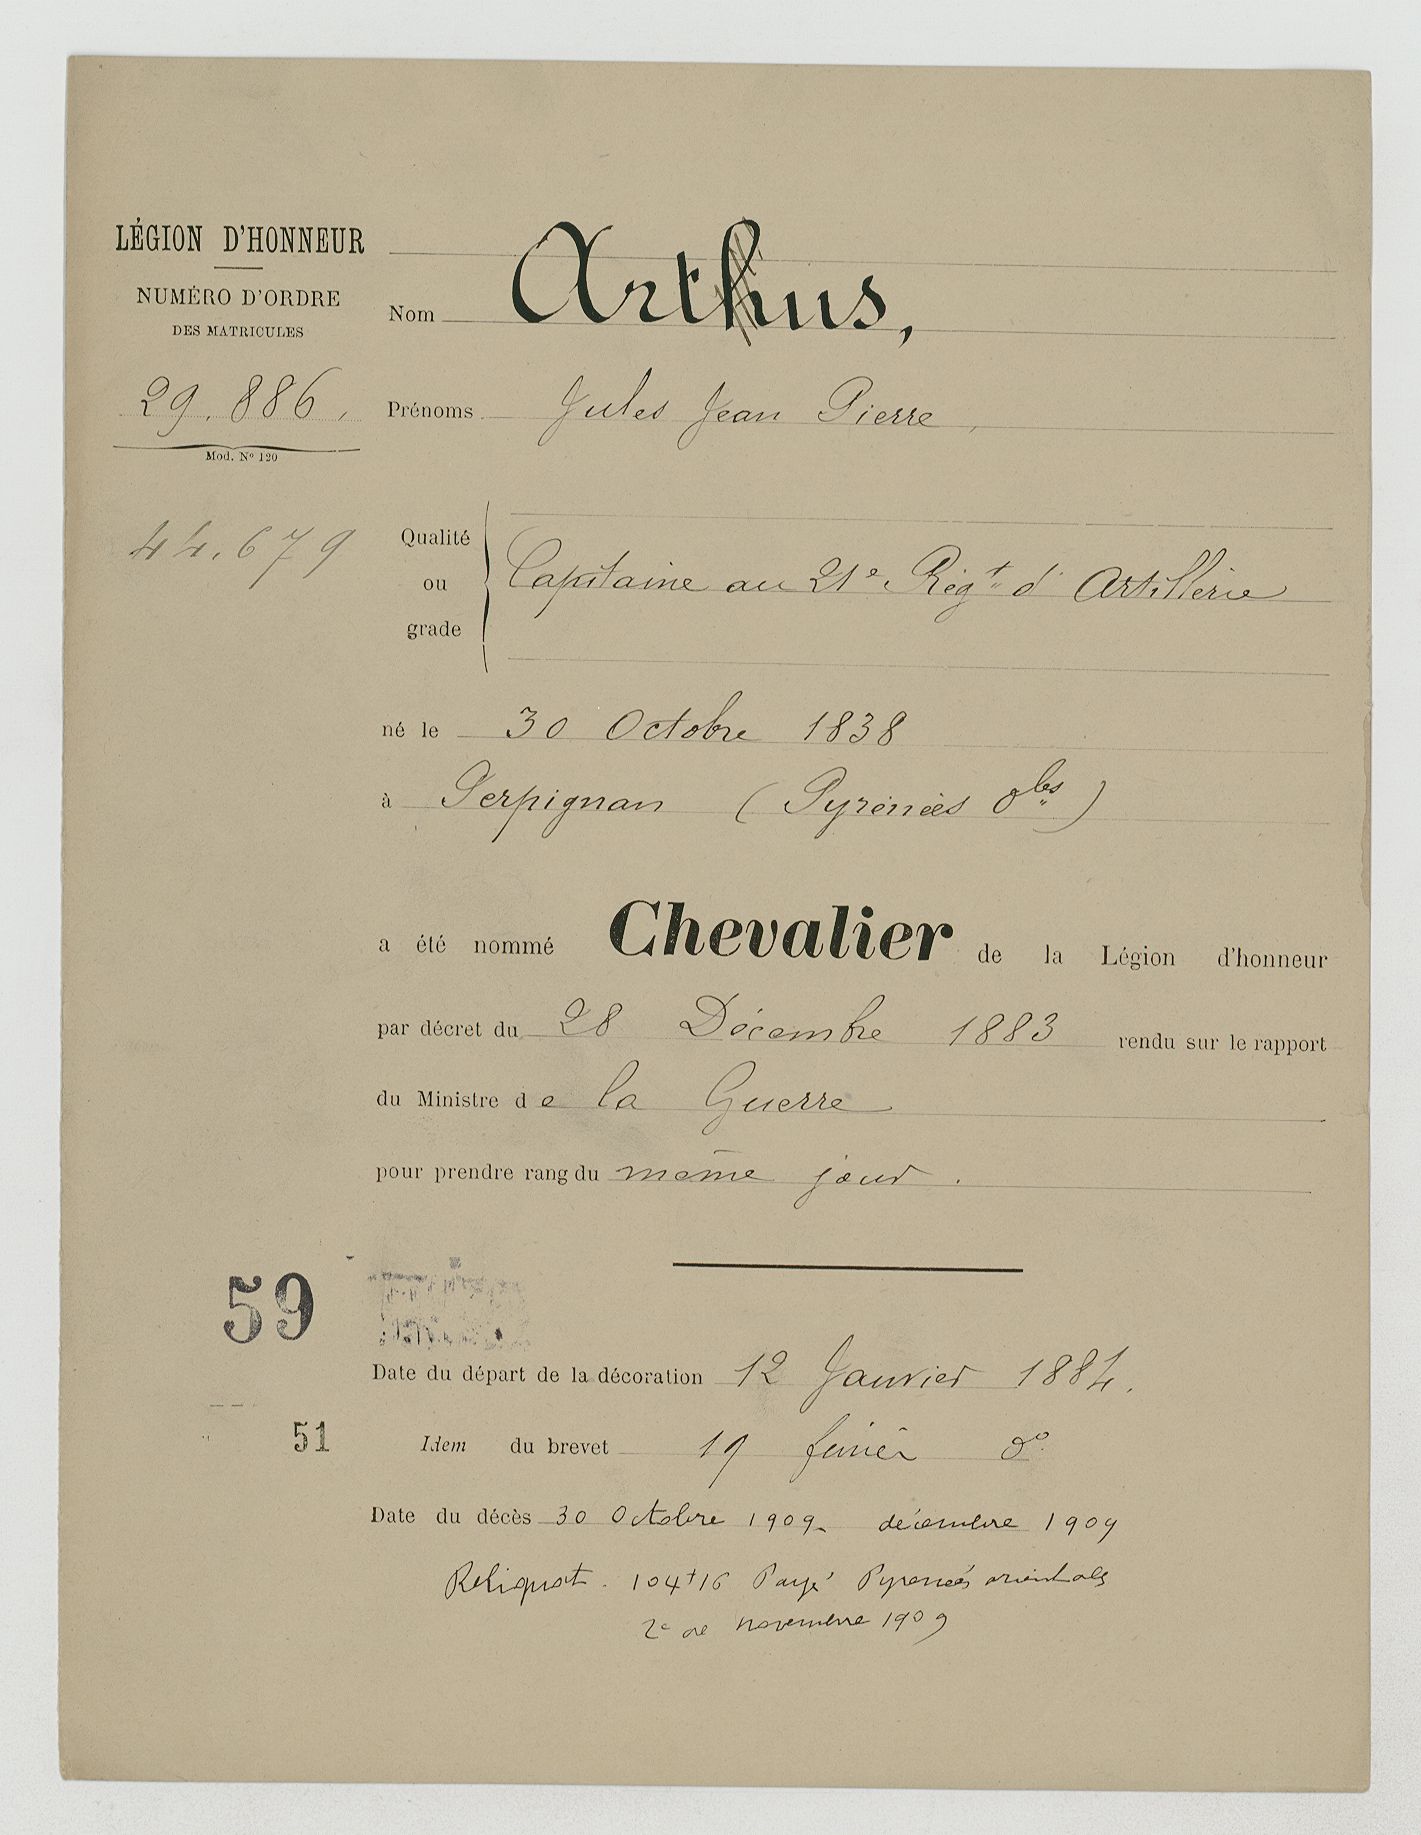 LÉGION D'HONNEUR
NUMÉRO D'ORDRE
DES MATRICULES
29.886.
Mod. Nº 120
44.679
Nom Arthus,
Prénoms Jules Jean Pierre,
Qualité
ou
grade
Capitaine au 21e Régt d'Artillerie
né le 30 Octobre 1838
à Perpignan (Pyrénées Oles)
a été nommé Chevalier de la Légion d'honneur
par décret du 28 Décembre 1883 rendu sur le rapport
du Ministre de la Guerre
pour prendre rang du même jour.
59
Date du départ de la décoration 12 Janvier 1884.
51
Idem du brevet 19 février do
Date du décès 30 Octobre 1909. décembre 1909
Reliquat. 104f16 Payé Pyrénées orientales
2e de novembre 1909